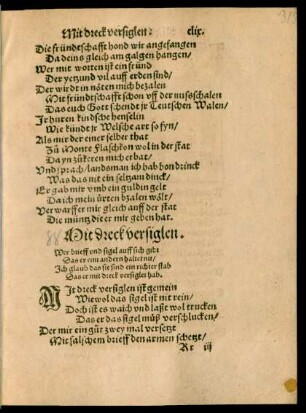 Mit dreck versiglen. clix.
Die fründtschafft hond wir angefangen
Da deins gleich am galgen hangen/
Wer mit worten ist ein fründ
Der yezund vil auff erden sind/
Der wirdt in nöten mich bezalen
Mit fründtschafft schon vff der nußschalen
Das euch Gott schendt jr Teutschen Walen/
Jr huren kindsche henselin
Wie kündt jr Welsche art so fyn/
Als mir der einer selber that
Zů Monte Flaschkon wol in der stat
Da yn zůkeren mich erbat/
Vnd sprach/landsman ich hab hon drinck
Was das nit ein seltzam dinck/
Er gab mir vmb ein guldin gelt
Da ich mein ürten bzalen wölt/
Verwarff er mir gleich auff der stat
Die müntz dit er mir geben hat.
88 Mit dreck versiglen.
Wer brieff vnd sigel auff sich gibt
Das er eim andern halte nit/
Ich glaub das sie sind ein rechter stab
Das er mit dreck versiglet hab.
Mit dreck versiglen ist gemein
Wiewol das sigel ist nit rein/
Doch ist es waich vnd laßt wol trucken
Das er das sigel můß verschlucken/
Der mir ein gůt zwey mal versetzt
Mit falschem brieff den armen schetzt/
Rr iij